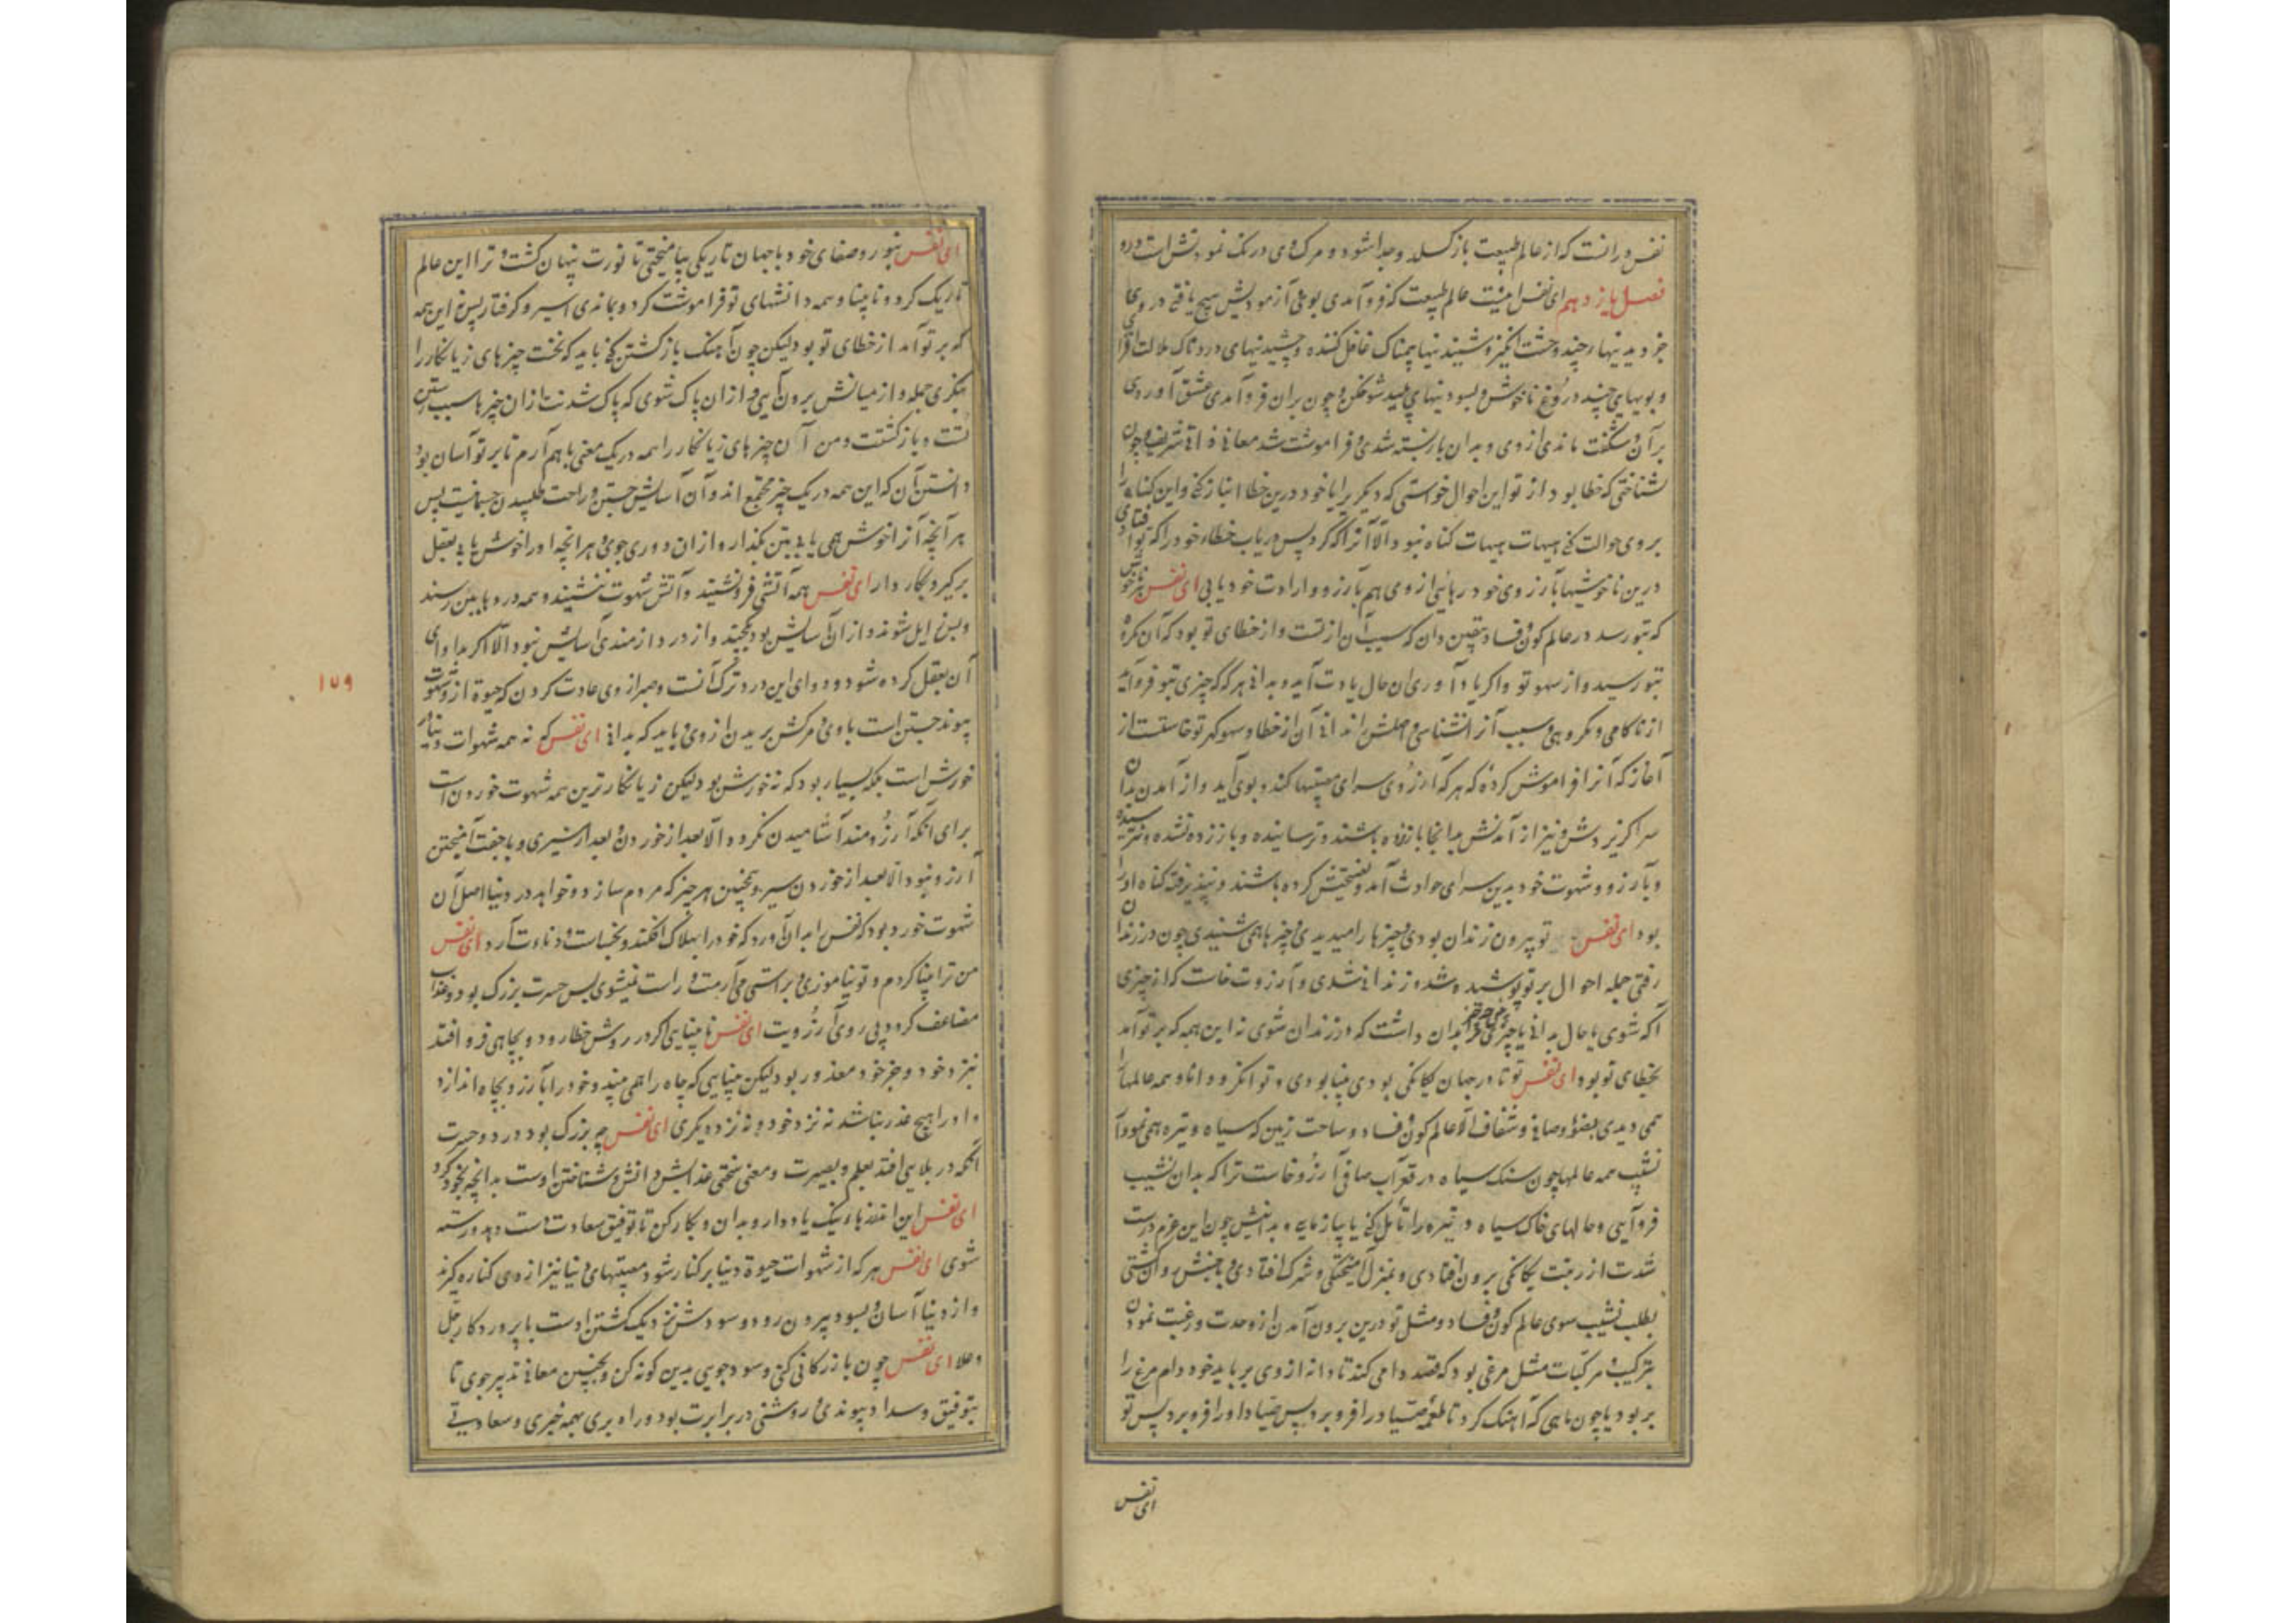 نفس در آنست که از عالم طبیعت بازگسلد و جدا شود و مرگ وی درنگ نمودنش است درو
فصل یازدهم ای نفس اینست عالم طبیعت که فرو آمدی بوی آزمودیش هیچ یافتی در وی
جز دیدنیها چند وحشت انگیز و شنیدنیها بیمناک غافل کننده و چشیدنیهای دردناک ملالت افزا
و بویهای چند دروغ ناخوش و بسودنیهای پلید و چون بران فرو آمدی عشق آوردی
بر آن و شگفت ماندی از وی و بدان بازبسته شدی و فراموشت شد معانی ذاتی شریف و چون
شناختی که خطا بود از تو این احوال خواستی که دیگریرا با خود درین خطا انباز کنی و این گناه را
بر وی حوالت کنی هیهات هیهات گناه نبود الا آنرا که کرد پس دریاب خطاء خود را که تو افتادی
درین ناخوشیها بآرزوی خود رهائی از وی هم بآرزو و ارادت خود یابی ای نفس هر ناخوشی
که بتو رسد در عالم کون و فساد یقین دان که سبب آن از تست و از خطای تو بود که آن مکروه
بتو رسید و از سهو تو و اگر یاد آوری آن حال یادت آید و بدانی هرگه که چیزی بتو فرو آید
از ناکامی و مکروهی و سبب آنرا نشناسی و اصلش ندانی آن از خطا و سهو گهر تو خاستست از
آغاز که آنرا فراموش کردهٔ که هر که آرزوی سرای مصیبتها کند و بوی آید و از آمدن بدان
سرا گزیردش و نیز از آمدنش بدانجا باززده باشند و ترساینده و باز زده نشده و نترسیده
و بآرزو و شهوت خود بدین سرای حوادث آمد و نصیحتش کرده باشند و نپذیرفته گناه او را
بود ای نفس تو بیرون زندان بودی و چیزها را میدیدی و چیزها همی شنیدی چون در زندان
رفتی جمله احوال بر تو پوشیده شد و زندانی شدی و آرزوت خاست که از چیزی
آگه شوی یا حال بدانی یا چیزی بدان داشت که در زندان شوی نه این همه که بر تو آمد
بخطای تو بود ای نفس تو تا در جهان یگانگی بودی بینا بودی و توانگر و دانا و همه عالمها را
همی دیدی بضؤ و صافی و شفاف الا عالم کون و فساد و ساحت زمین که سیاه و تیره همی نمود از
نشیب همه عالمها چون سنگ سیاه در قعر آب صافی آرزو خاست ترا که بدان نشیب
فرو آیی و حالهای خاک سیاه و تیره را تأمل کنی یا بیازمایی و بدانیش چون این عزم درست
شدت از رتبت یگانگی برون افتادی و بمنزل آمیختگی و شرک افتادی و بجنبش و آن گشتی
بطلب نشیب سوی عالم کون و فساد و مثل تو درین برون آمدن از وحدت و رغبت نمودن
بترکیب و مرکبات مثل مرغی بود که قصد دامی کند تا دانه از وی برباید خود دام مرغ را
بربود یا چون ماهی که آهنگ کرد تا طعمهٔ صیاد را فرو برد پس صیاد او را فرو برد پس تو
ای نفس
ای نفس بنور و صفای خود با جهان تاریکی بیامیختی تا نورت پنهان گشت و ترا این عالم
تاریک کرد و نابینا و همه دانشهای تو فراموشت کرد و بماندی اسیر و گرفتار پس این همه
که بر تو آمد از خطای تو بود لیکن چون آهنگ بازگشتن کنی باید که نخست چیزهای زیانکار را
بنگری جمله و از میانش برون آیی و از ان پاک شوی که پاک شدنت از ان چیزها سبب رستن
تست و بازگشتت و من آن چیزهای زیانکار را همه در یک معنی با هم آرم تا بر تو آسان بود
دانستن آن که این همه در یک چیز مجتمع اند و آن آسایش جستن و راحت طلبیدن جسمانیست پس
هر آنچه آنرا خوش همی یابی بتن بگذار و از ان دوری جوی و هر آنچه او را خوش یابی بعقل
برگیر و بکار دار ای نفس همه آتشی فرو نشیند و آتش شهوت ننشیند و همه دردها بتن رسند
و بس زایل شوند و از ان آسایش بود بجهد و از درد آزمندی آسایش نبود الا اگر مداوای
آن بعقل کرده شود و دوای این درد ترک آنست و صبر از وی عادت کردن که حیوة از شهوت
پیوند جستن است با وی و مرگش بریدن از وی و باید که بدانی ای نفس که نه همه شهوات دنیا را
خورش است بلکه بسیار بود که نه خورش بود لیکن زیانکارترین همه شهوت خوردن است
برای آنکه آرزومند آشامیدن نگردد الا بعد از خوردن و بعد از سیری و با جفت آمیختن
آرزو نبود الا بعد از خوردن سیر و همچنین هر چیز که مردم سازد و خواهد در دنیا اصل آن
شهوت خورد بود که نفس را بدان آورد که خود را بهلاک افکند و بخساست و دناءت آرد ای نفس
من ترا بینا کردم و تو بیناموزی و براستی می آرمت و راست نمیشوی پس حسرت بزرگ بود و عذاب
مضاعف گردد پی روی آرزویت ای نفس نابینایی اگر در روش خطا رود و بچاهی فرو افتد
نزد خود و جز خود معذور بود لیکن بینایی که چاه را همی بیند و خود را بآرزو بچاه اندازد
او را هیچ عذر نباشد نه نزد خود و نه نزد دیگری ای نفس چه بزرگ بود درد و حسرت
آنکه در بلایی افتد بعلم و بصیرت و معنی سختی عذابش دانش و شناختن اوست بدانچه بخود کرد
ای نفس این اندرزها نیک یاد دار و بدان و بکار کن تا توفیق سعادت دست دهد و رسته
شوی ای نفس هر که از شهوات حیوة دنیا برکنار شود مصیبتهای دنیا نیز از وی کناره گیرند
و از دنیا آسان و بسود بیرون رود و سودش نزدیک گشتن اوست بپروردگار جل
و علا ای نفس چون بازرگانی کنی و سود جویی بدین گونه کن و بچنین معانی تدبیر جوی تا
بتوفیق و سداد پیوندی و روشنی در برابرت بود و راه بری بهمه خیری و سعادتی
۱۵۹